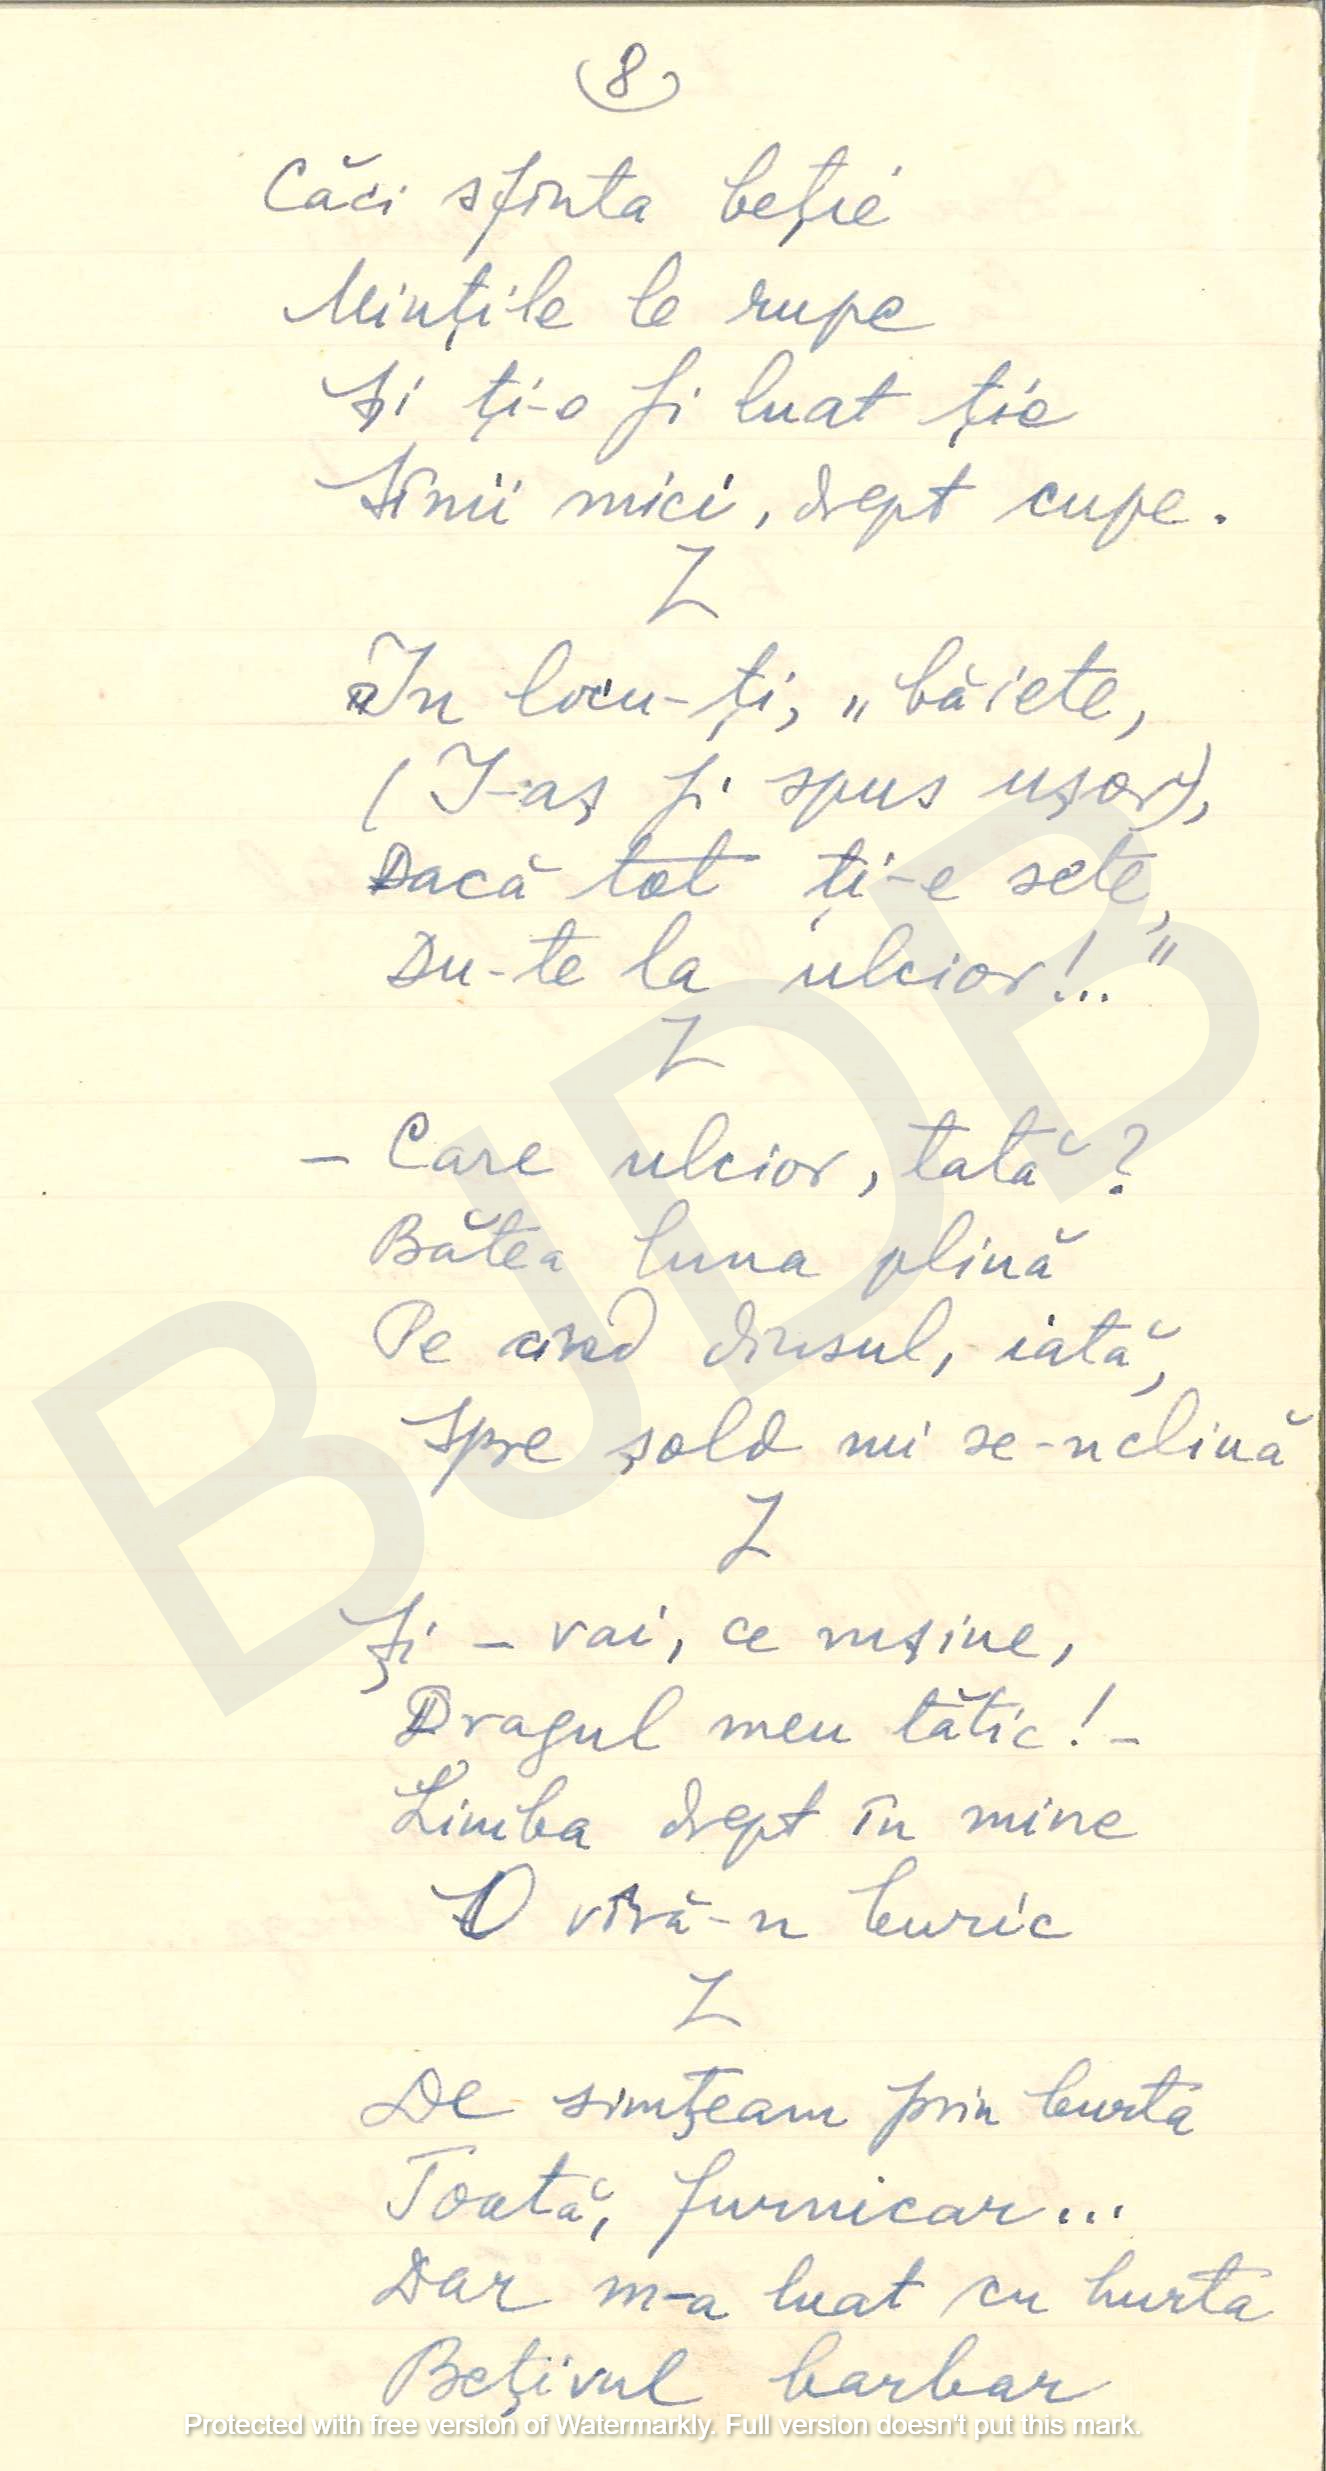 8
Căci sfînta beție
Mințile le rupe
Și ți-o fi luat ție
Sînii mici, drept cupe.
Z
"În locu-ți, "băiete,
(I-aș fi spus ușor),
Dacă tot ți-e sete,
Du-te la ulcior!.."
Z
- Care ulcior, tată?
Bătea luna plină
Pe cînd dînsul, iată,
Spre șold mi se-nclină
Z
Și - vai, ce rușine,
Dragul meu tătic! -
Limba drept în mine
O vîră-n buric
Z
De simțeam prin burta
Toată, furnicar...
Dar m-a luat cu hurta
Bețivul barbar
BJDB
Protected with free version of Watermarkly. Full version doesn't put this mark.